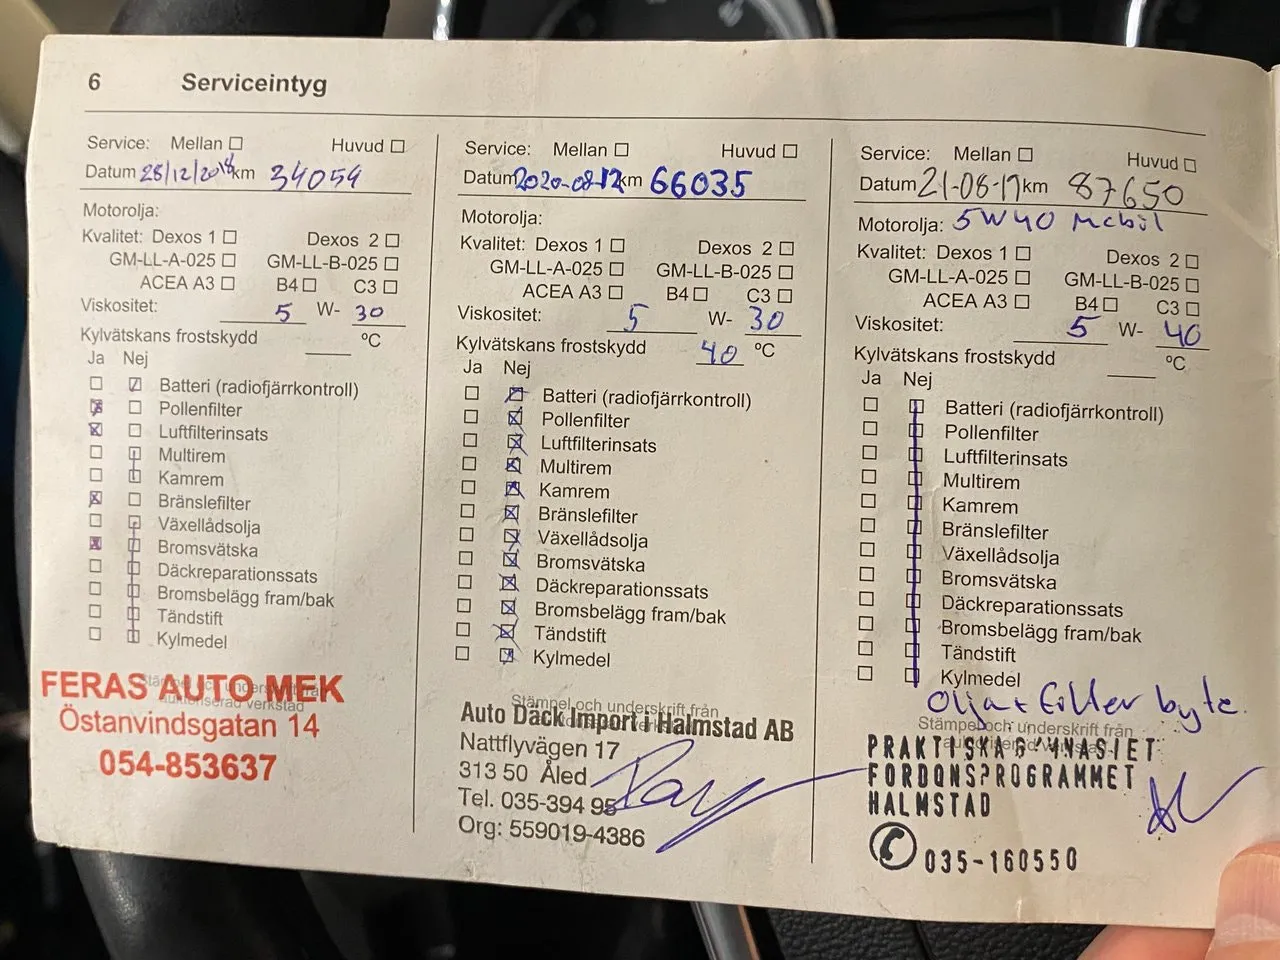 6 Serviceintyg
Service: Mellan Huvud
Datum 28/12/2018 km 34054
Motorolja:
Kvalitet: Dexos 1 Dexos 2
GM-LL-A-025 GM-LL-B-025
ACEA A3 B4 C3
Viskositet: 5 W- 30
Kylvätskans frostskydd ºC
Ja Nej
Batteri (radiofjärrkontroll)
Pollenfilter
Luftfilterinsats
Multirem
Kamrem
Bränslefilter
Växellådsolja
Bromsvätska
Däckreparationssats
Bromsbelägg fram/bak
Tändstift
Kylmedel
Stämpel och underskrift från
auktoriserad verkstad
FERAS AUTO MEK
Östanvindsgatan 14
054-853637
Service: Mellan Huvud
Datum 2020-08-12 km 66035
Motorolja:
Kvalitet: Dexos 1 Dexos 2
GM-LL-A-025 GM-LL-B-025
ACEA A3 B4 C3
Viskositet: 5 W- 30
Kylvätskans frostskydd 40 ºC
Ja Nej
Batteri (radiofjärrkontroll)
Pollenfilter
Luftfilterinsats
Multirem
Kamrem
Bränslefilter
Växellådsolja
Bromsvätska
Däckreparationssats
Bromsbelägg fram/bak
Tändstift
Kylmedel
Stämpel och underskrift från
Auto Däck Import i Halmstad AB
Nattflyvägen 17
313 50 Åled
Tel. 035-394 95
Org: 559019-4386
Service: Mellan Huvud
Datum 21-08-17 km 87650
Motorolja: 5W40 Mobil
Kvalitet: Dexos 1 Dexos 2
GM-LL-A-025 GM-LL-B-025
ACEA A3 B4 C3
Viskositet: 5 W- 40
Kylvätskans frostskydd ºC
Ja Nej
Batteri (radiofjärrkontroll)
Pollenfilter
Luftfilterinsats
Multirem
Kamrem
Bränslefilter
Växellådsolja
Bromsvätska
Däckreparationssats
Bromsbelägg fram/bak
Tändstift
Kylmedel
Olja + filter byte.
Stämpel och underskrift från
PRAKTISKA GYMNASIET
FORDONSPROGRAMMET
HALMSTAD
035-160550